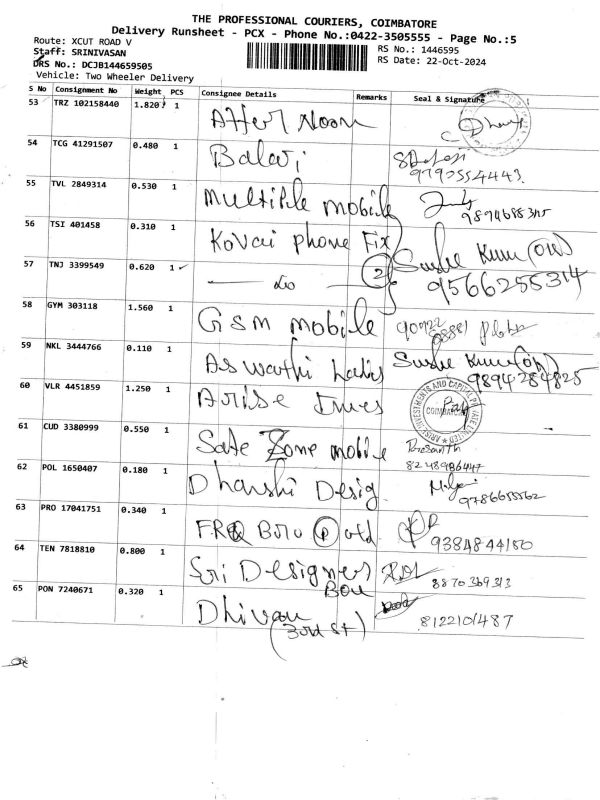 THE PROFESSIONAL COURIERS, COIMBATORE
Delivery Runsheet - PCX - Phone No.:0422-3505555 - Page No.:5
Route: XCUT ROAD V
RS No.: 1446595
Staff: SRINIVASAN
RS Date: 22-Oct-2024
DRS No.: DCJB144659505
Vehicle: Two Wheeler Delivery
S No Consignment No Weight PCS Consignee Details Remarks Seal & Signature
53 TRZ 102158440 1.820 1 After Noon
54 TCG 41291507 0.480 1 Balaji 9790554443
55 TVL 2849314 0.530 1 Multiple mobile
56 TSI 401458 0.310 1 Kovai phone Fix
57 TNJ 3399549 0.620 1 do 2 9566255314
58 GYM 303118 1.560 1 GSM mobile
59 NKL 3444766 0.110 1 Aswathi 9894284825
60 VLR 4451859 1.250 1 Arise Inves
COIMBATORE
61 CUD 3380999 0.550 1 Safe Zone mobile Prasanth
8248986447
62 POL 1650407 0.180 1 Dharshi Desig 9786655562
63 PRO 17041751 0.340 1 9384844180
64 TEN 7818810 0.800 1 Sri Designers 8870369313
Bou
65 PON 7240671 0.320 1 Dhivan 8122101487
(3rd St)